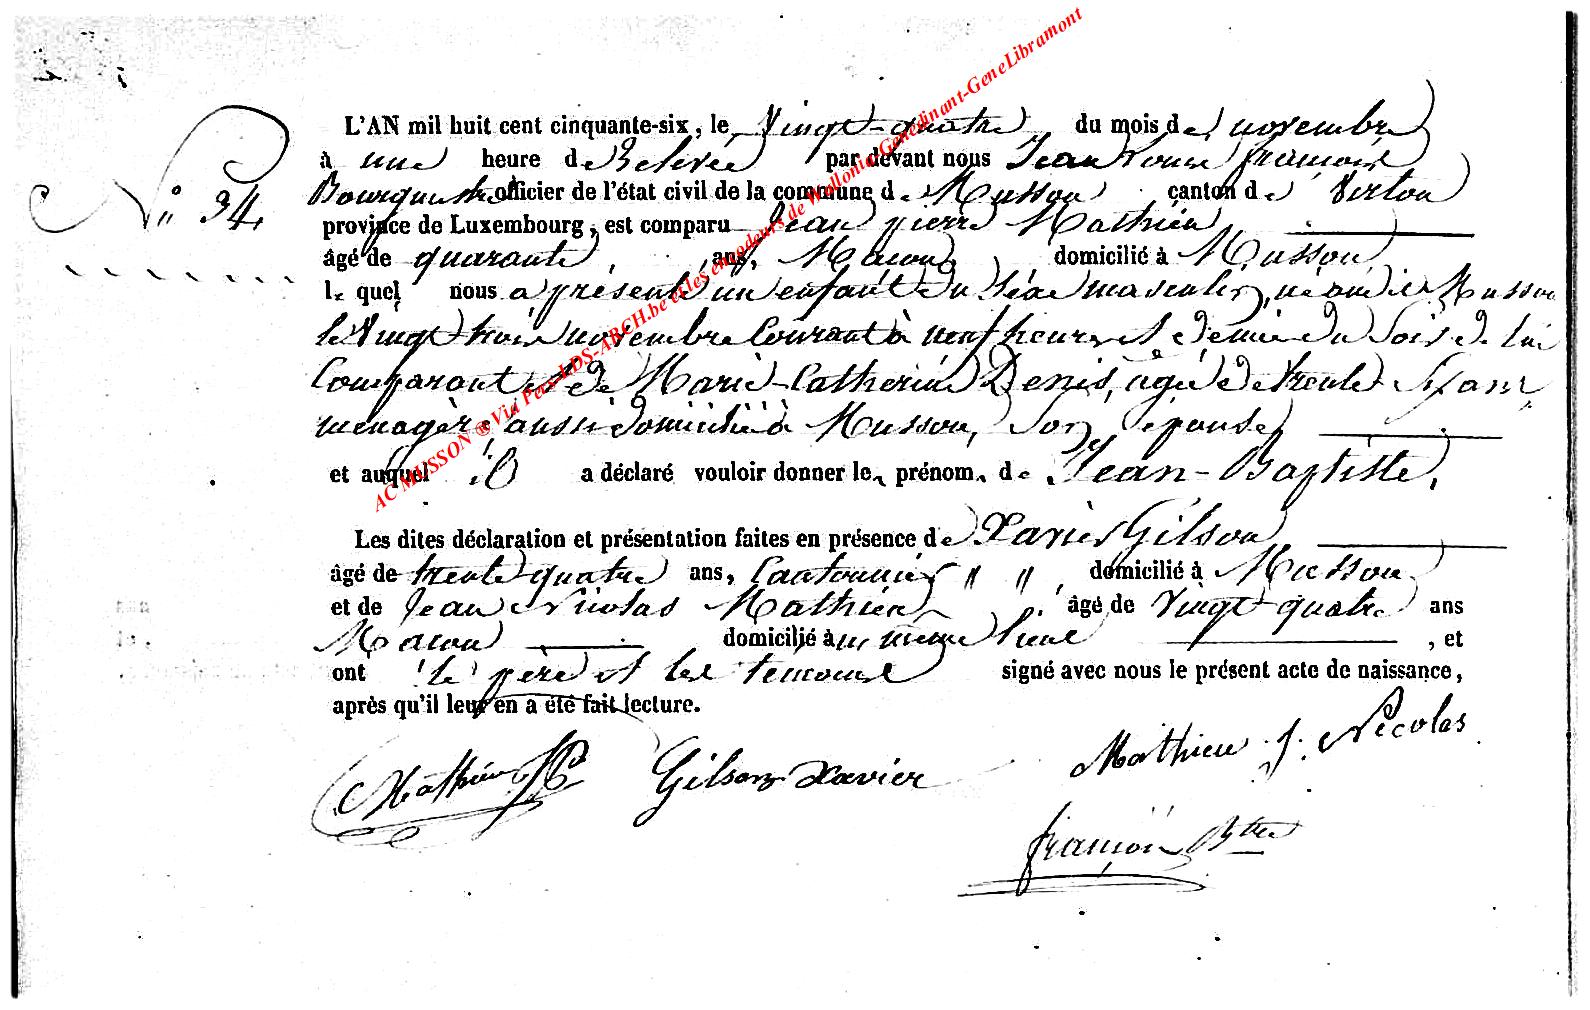 N° 34.
L'AN mil huit cent cinquante-six, le Vingt-quatre du mois de novembre
à une heure de Relevée par devant nous Jean Louis françois
Bourguemestre officier de l'état civil de la commune de Musson canton de Virton
province de Luxembourg, est comparu Jean pierre Mathieu
âgé de quarante ans, Macon, domicilié à Musson
le quel nous a présenté un enfant du Séxe masculin, né audit Musson
le Vingt trois novembre Courant à neuf heures et demie du Soir de lui
Comparant et de Marie-Catherine Denis, agée de trente-Six ans
menagère, aussi domiciliée à Musson, Son épouse,
et auquel il a déclaré vouloir donner le prénom de Jean-Baptiste.
Les dites déclaration et présentation faites en présence de Xavier Gilson
âgé de trente quatre ans, Cantonnier " " domicilié à Musson
et de Jean Nicolas Mathieu, âgé de Vingt-quatre ans
Macon domicilié au même lieu , et
ont le père et les témoins signé avec nous le présent acte de naissance,
après qu'il leur en a été fait lecture.
Mathieu JP Gilson Xavier Mathieu j. Nicolas
françois Btre
AC MUSSON ® Via Pex-LDS-ARCH.be et les encodeurs de Wallonia-Genedinant-GeneLibramont